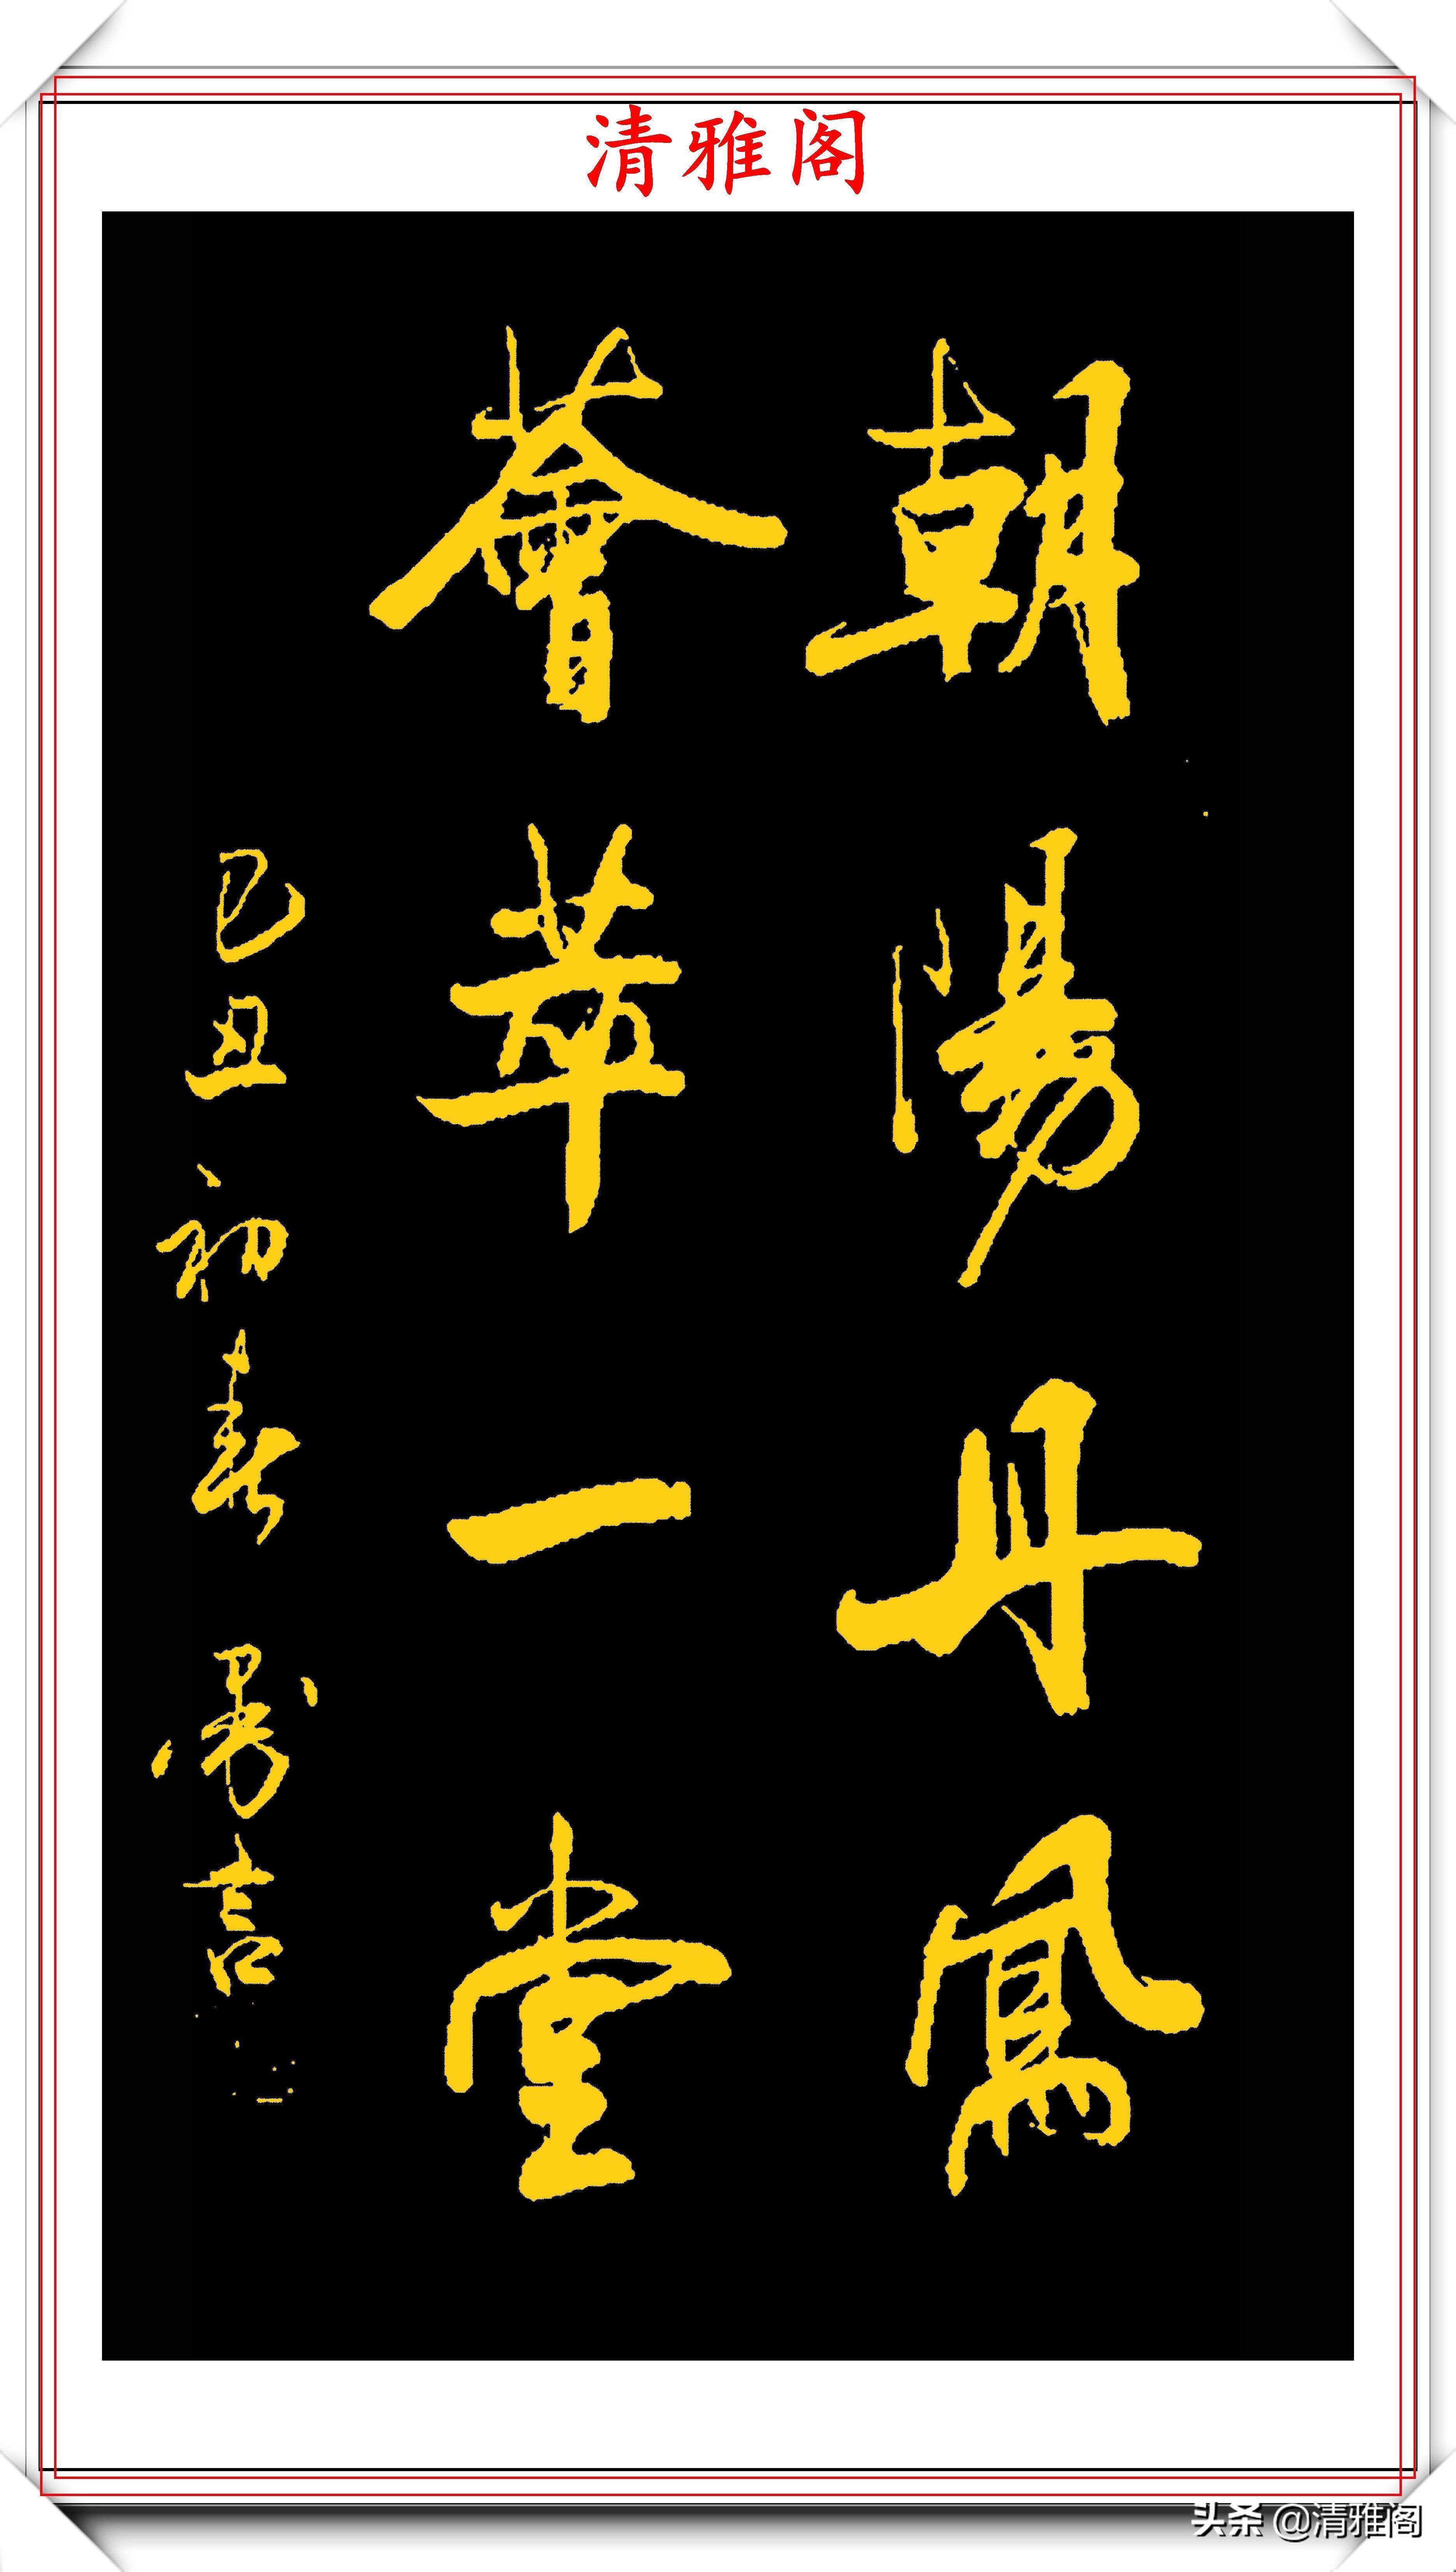 清雅阁
朝陽丹鳳
薈萃一堂
己丑初春 言
头条 @清雅阁